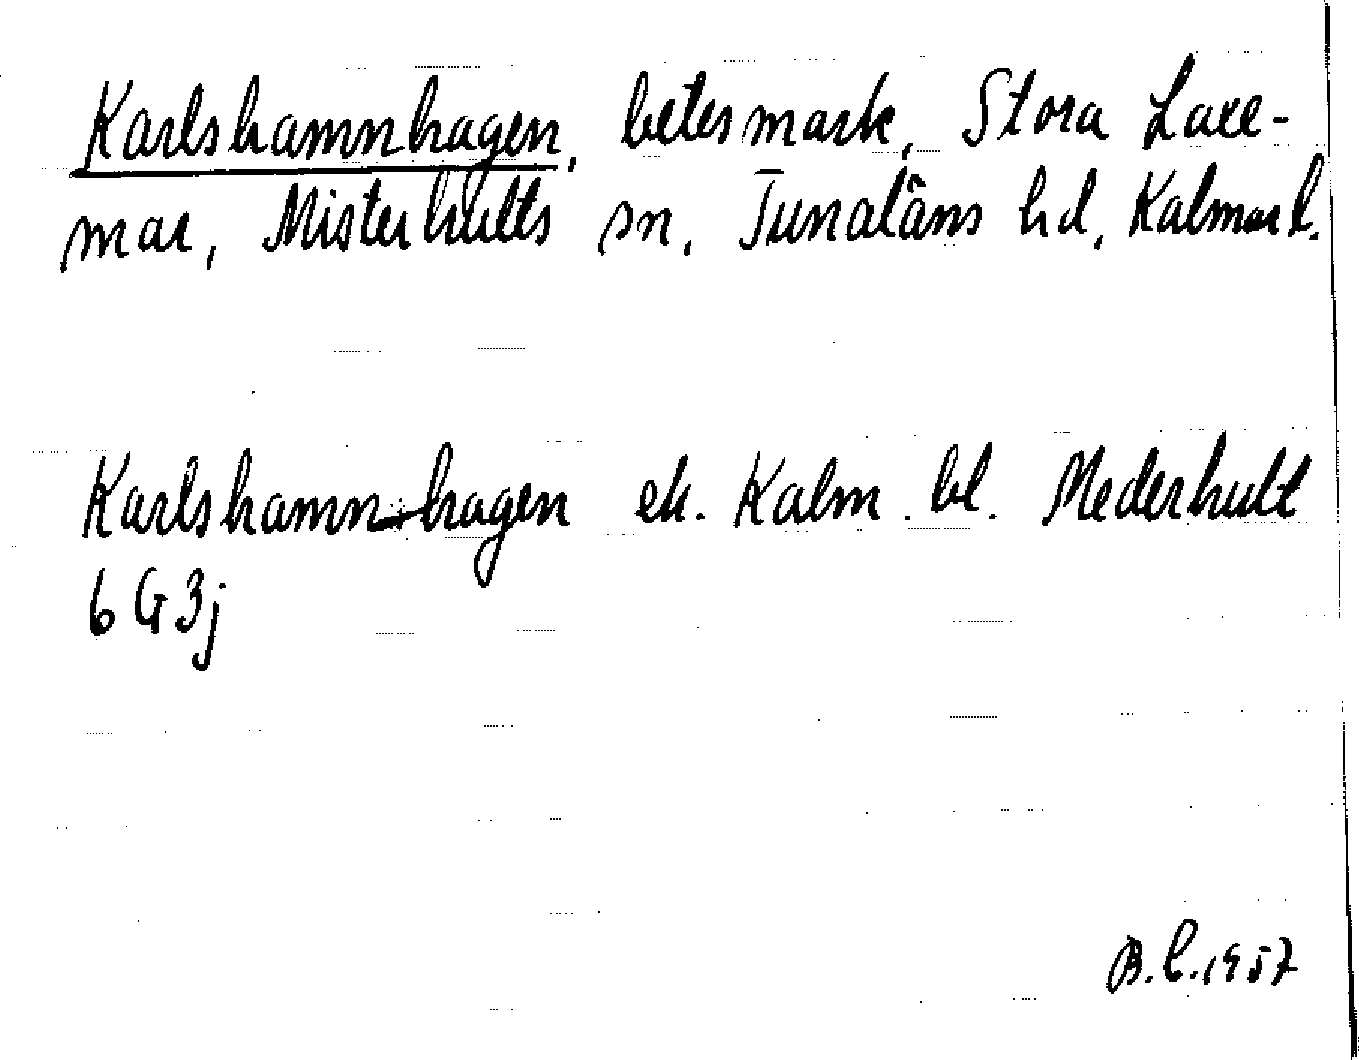 Karlshamnhagen, betesmark, Stora Laxe-
mar, Misterhults sn, Tunaläns hd, Kalmar l.
Karlshamn-hagen ek. Kalm. bl. Mederhult
6 G 3j
B.L. 1957